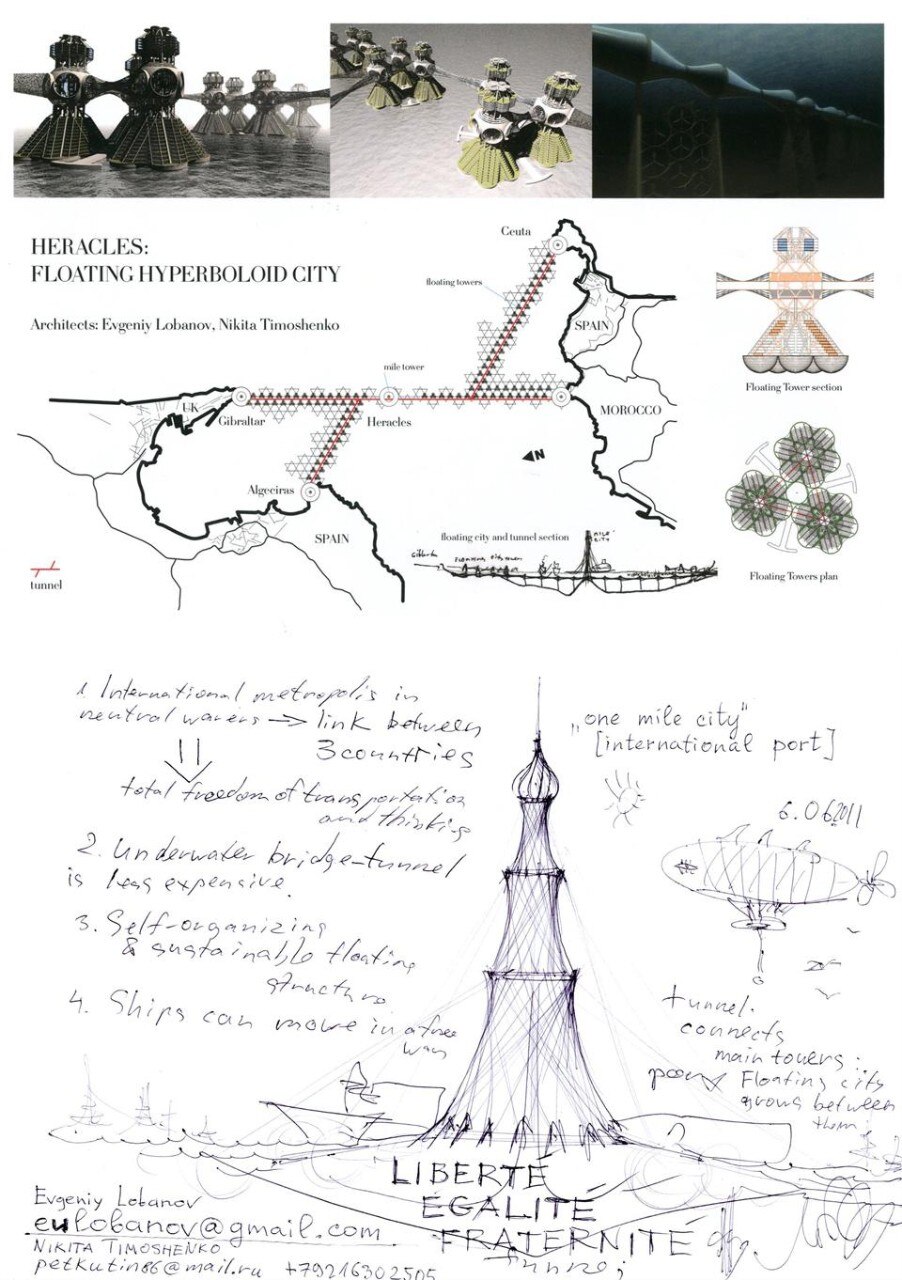 HERACLES:
FLOATING HYPERBOLOID CITY
Architects: Evgeniy Lobanov, Nikita Timoshenko
Ceuta
floating towers
SPAIN
mile tower
UK
Gibraltar
Heracles
MOROCCO
N
Algeciras
SPAIN
tunnel
floating city and tunnel section
MILE
CITY
Floating Tower section
Floating Towers plan
1 International metropolis in
neutral waters → link between
3 countries
total freedom of transportation
and thinking
2. Underwater bridge-tunnel
is less expensive.
3. Self-organizing
& sustainable floating
structure
4. Ships can move in a free
way
„one mile city"
[international port]
6.06.2011
tunnel.
connects
main towers.
Floating city
grows between
them.
LIBERTÉ
ÉGALITÉ
FRATERNITÉ
Evgeniy Lobanov
eulobanov@gmail.com
NIKITA TIMOSHENKO
petkutin86@mail.ru +79216302505